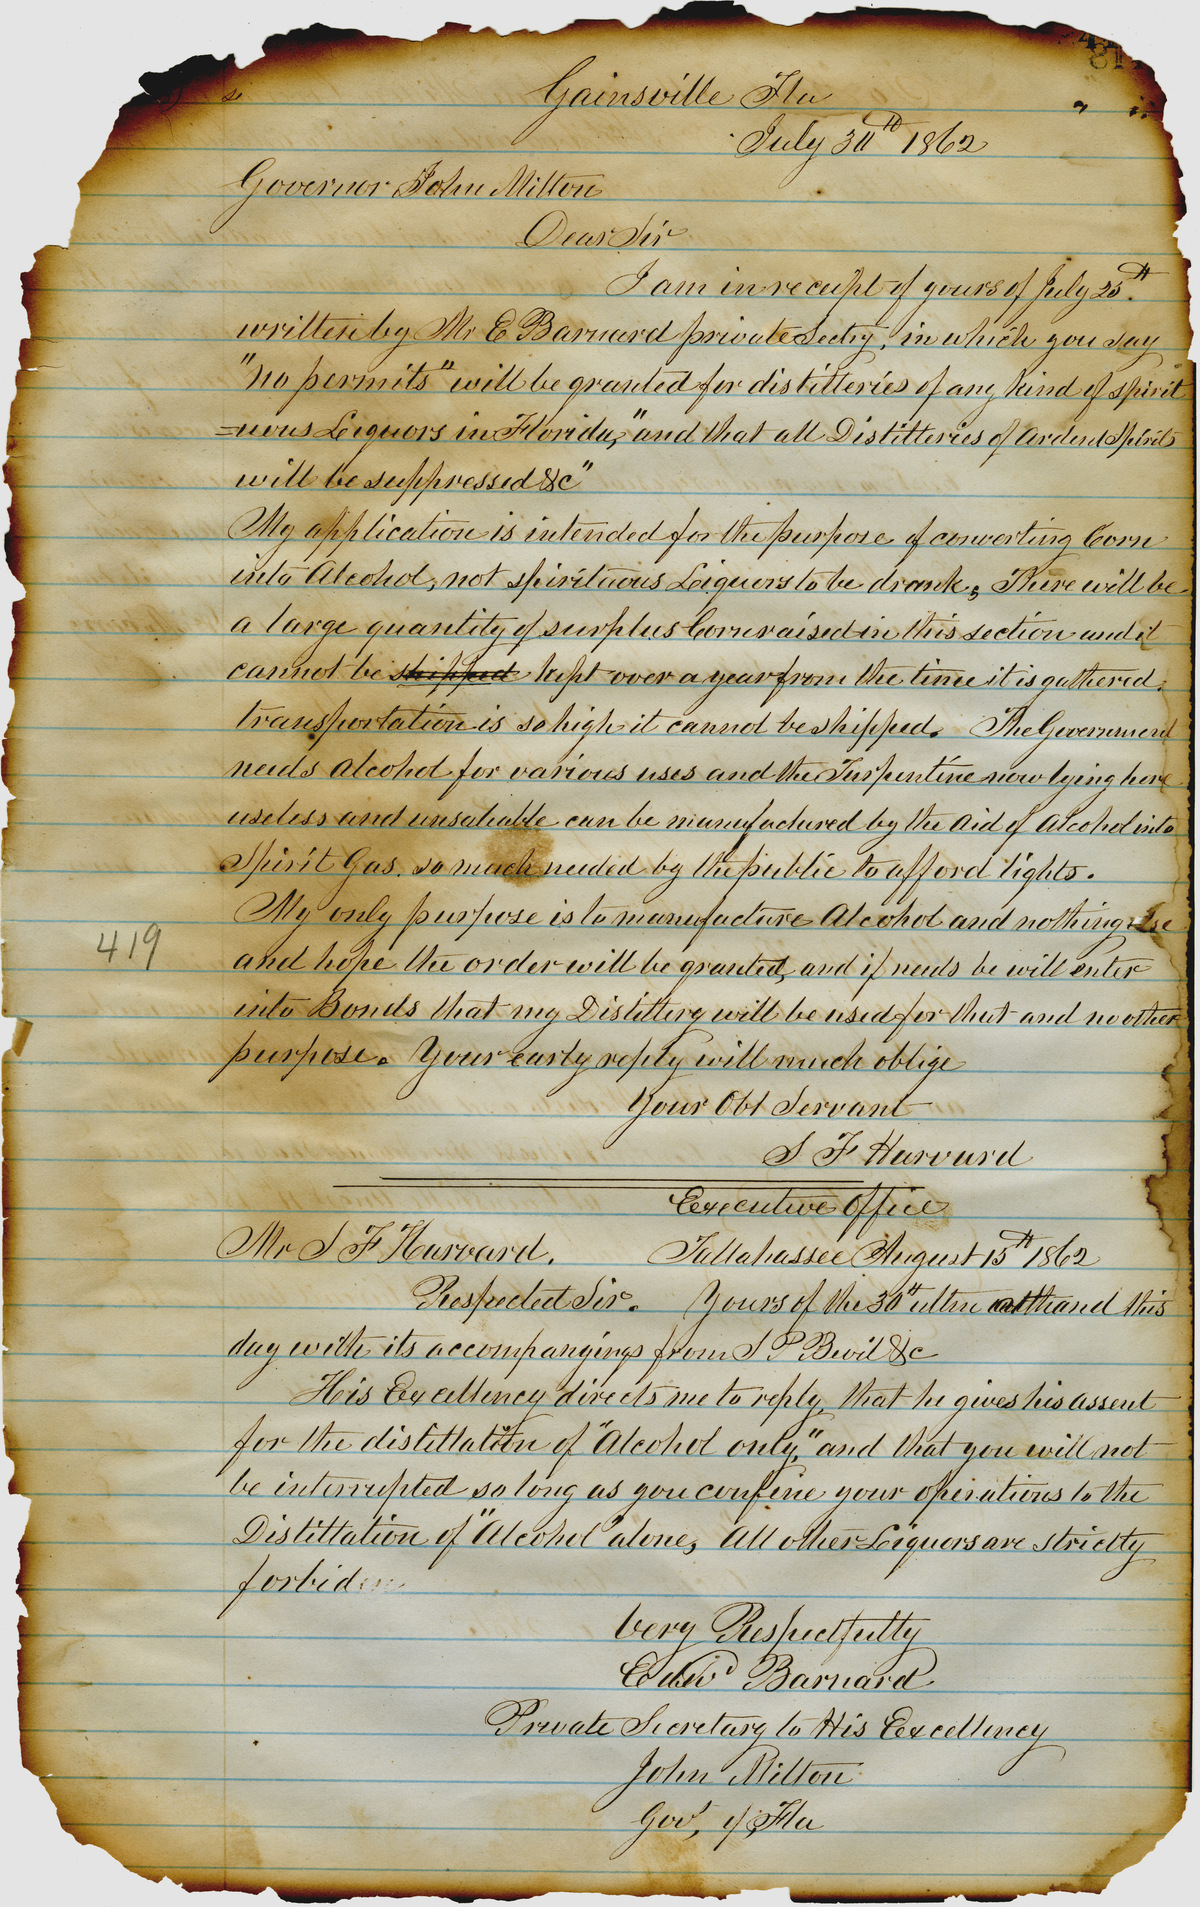 Gainsville Fla
July 30th 1862
Governor John Milton
Dear Sir
I am in receipt of yours of July 25th
written by Mr E Barnard private Sectry, in which you say
"no permits" will be granted for distilleries of any kind of spirit
=uous Liquors in Florida," and that all Distilleries of Ardent Spirits
will be suppressed &c"
My application is intended for the purpose of converting Corn
into Alcohol, not spirituous Liquors to be drank, There will be
a large quantity of surplus Corn raised in this section and it
cannot be shipped kept over a year from the time it is gathered.
transportation is so high it cannot be shipped. The Government
needs Alcohol for various uses and the Turpentine now lying here
useless and unsaleable can be manufactured by the aid of Alcohol into
Spirit Gas. so much needed by the public to afford lights.
My only purpose is to manufacture Alcohol and nothing else
419
and hope the order will be granted, and if needs be will enter
into Bonds that my Distillery will be used for that and no other
purpose. Your early reply will much oblige
Your Obt Servant
S F Harvard
Executive Office
Mr S F Harvard. Tallahassee August 15th 1862
Respected Sir. Yours of the 30th ultm at hand this
day with its accompanyings from S P Bevil &c
His Excellency directs me to reply, that he gives his assent
for the distillation of "Alcohol only," and that you will not
be interrupted so long as you confine your operations to the
Distillation of "Alcohol" alone, All other Liquors are strictly
forbiden
Very Respectfully
Edwd Barnard
Private Secretary to His Excellency
John Milton
Gov, of Fla